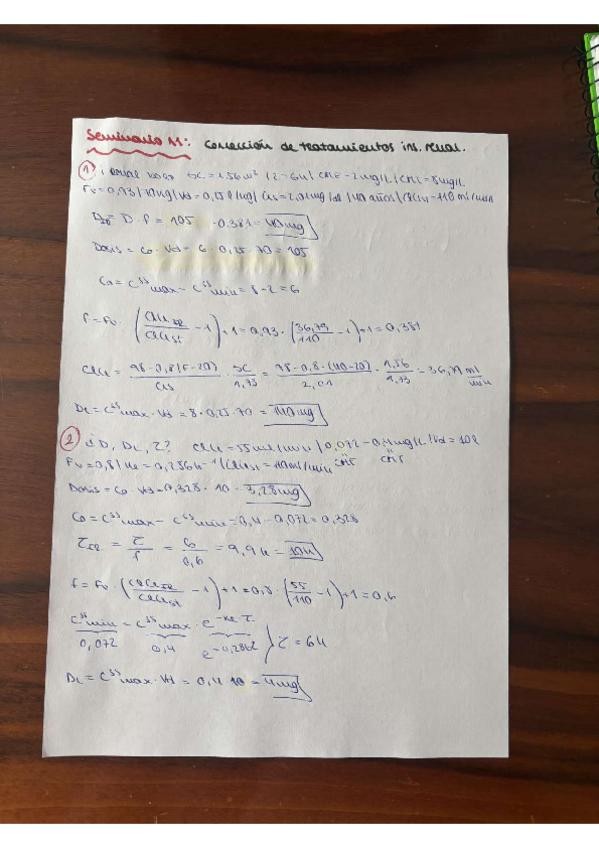 Seminario 11: Corrección de tratamientos ins. renal.
① SC = 1,56 m² / Z = 6h / CME = 2mg/L / CMT = 8mg/L
Fu = 0,93 / 70kg / Vd = 0,25 l/kg / Crs = 2,01mg/dl / 40 años / ClCr = 110 ml/min
D = D · f = 105 · 0.381 = 40mg
Dosis = Co · Vd = 6 · 0,25 · 70 = 105
Co = C^ss max - C^ss min = 8 - 2 = 6
f = Fu · ( / - 1) + 1 = 0,93 · (36,79/110 - 1) + 1 = 0,381
Clcr = 98 - 0,8 (E - 20)/Crs · SC/1,73 = 98 - 0,8 · (40 - 20)/2,01 · 1,56/1,73 = 36,79 ml/min
DL = C^ss max · Vd = 8 · 0,25 · 70 = 140mg
② ¿D, DL, Z? Clcr = 55 ml/min / 0,072 - 0,4mg/L / Vd = 10l
Fu = 0,8 / Ke = 0,286h⁻¹ / = 110ml/min CME CMT
Dosis = Co · Vd = 0,328 · 10 = 3,28mg
Co = C^ss max - C^ss min = 0,4 - 0,072 = 0,328
= τ/f = 6/0,6 = 9,9h = 10h
f = Fu · ( / - 1) + 1 = 0,8 · (55/110 - 1) + 1 = 0,6
C^ss min = C^ss max · e^-Ke·τ
0,072 0,4 } τ = 6h
DL = C^ss max · Vd = 0,4 · 10 = 4mg